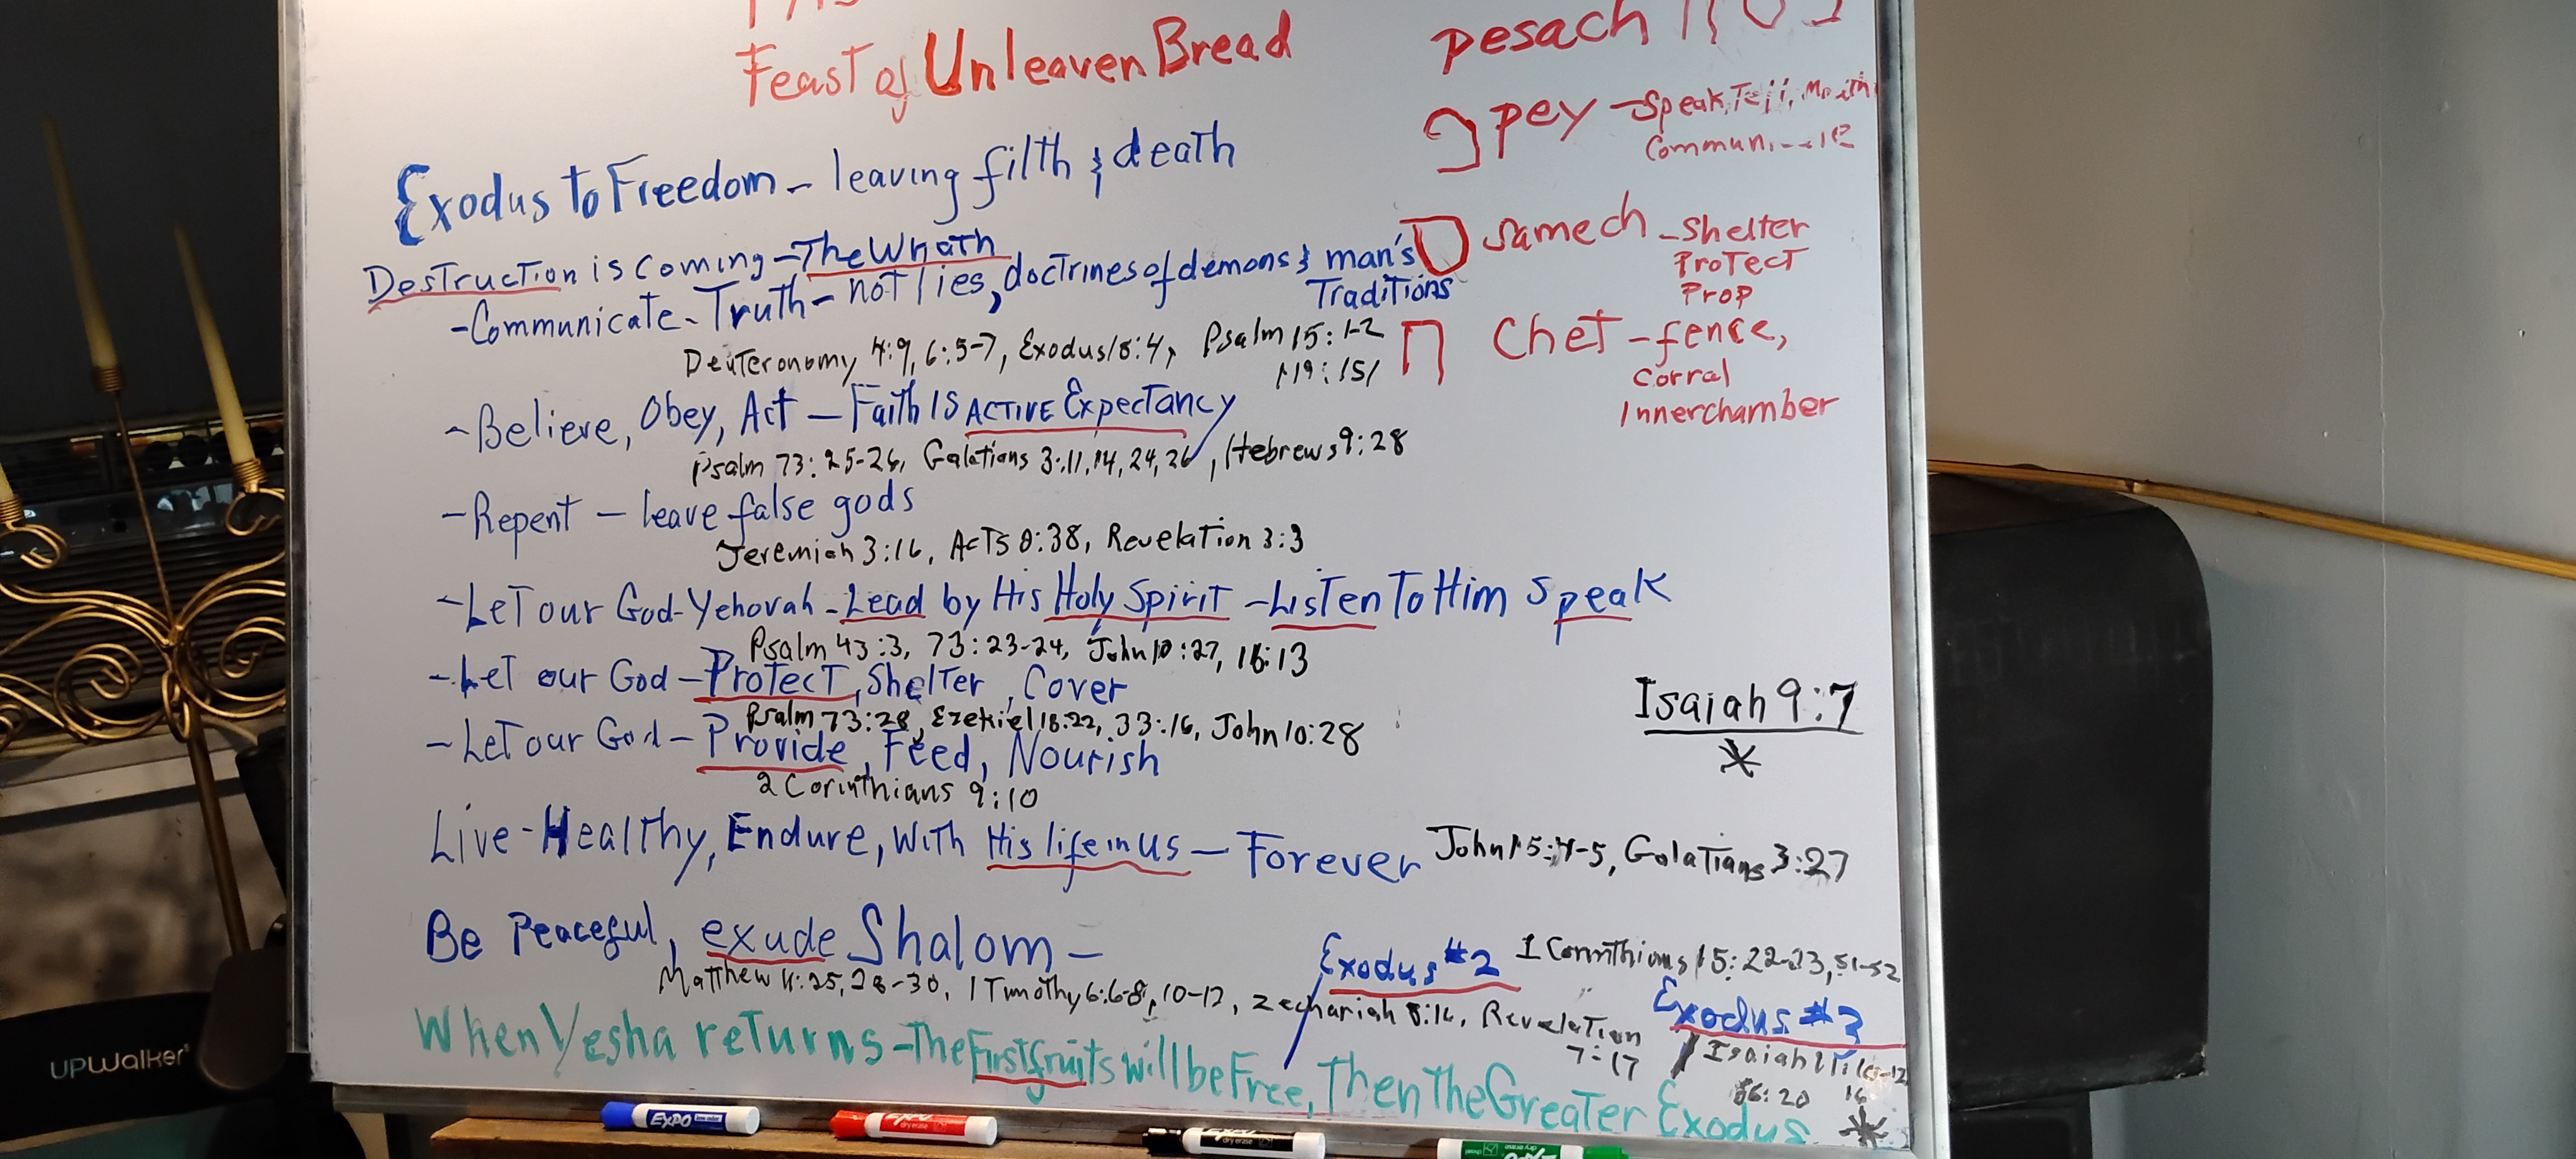 Feast of Unleaven Bread
pesach
פ pey - Speak, Tell, Mouth,
ס samech - Shelter
Protect
Prop
ח Chet - fence,
Corral
Innerchamber
Exodus to Freedom - leaving filth & death
Destruction is coming - The Wrath
- Communicate - Truth - not lies, doctrines of demons & man's
Traditions
Deuteronomy 4:9, 6:5-7, Exodus 18:4, Psalm 15:1-2
119:151
- Believe, Obey, Act - Faith Is Active Expectancy
Psalm 73:25-26, Galatians 3:11,14,24,26, Hebrews 9:28
- Repent - leave false gods
Jeremiah 3:16, Acts 8:38, Revelation 3:3
- Let our God - Yehovah - Lead by His Holy Spirit - Listen To Him Speak
Psalm 43:3, 73:23-24, John 10:27, 16:13
- Let our God - Protect, Shelter, Cover
Psalm 73:28, Ezekiel 18:22, 33:16, John 10:28
- Let our God - Provide, Feed, Nourish
2 Corinthians 9:10
Isaiah 9:7
*
Live - Healthy, Endure, With His life in us - Forever John 15:4-5, Galatians 3:27
Be Peaceful, exude Shalom -
Matthew 11:25, 28-30, 1 Timothy 6:6-8, 10-12, Zechariah 8:16, Revelation
7:17
Exodus #2 1 Corinthians 15:22-23, 51-52
Exodus #3
Isaiah
16
*
When Yesha returns - The Firstfruits will be Free, Then The Greater Exodus
UPWalker
EXPO
EXPO
dry erase
dry erase
EXPO